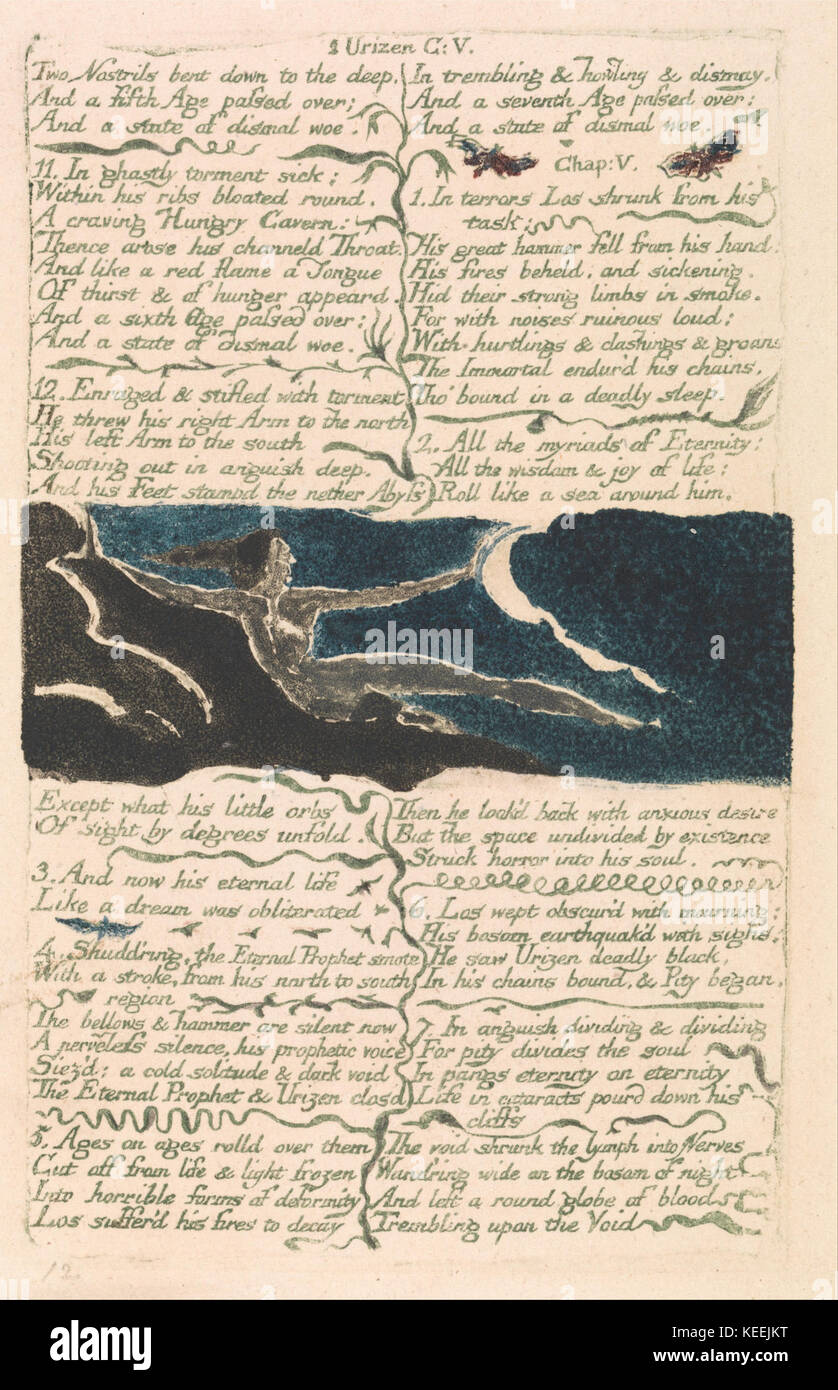 1 Urizen C:V.
Two Nostrils bent down to the deep.
And a fifth Age passed over;
And a state of dismal woe.
11. In ghastly torment sick;
Within his ribs bloated round.
A craving Hungry Cavern:
Thence arose his channeld Throat
And like a red flame a Tongue
Of thirst & of hunger appeard.
And a sixth Age passed over:
And a state of dismal woe.
12. Enraged & stifled with torment
He threw his right Arm to the north
His left Arm to the south
Shooting out in anguish deep.
And his Feet stampd the nether Abyss
In trembling & howling & dismay.
And a seventh Age passed over:
And a state of dismal woe.
Chap: V.
1. In terrors Los shrunk from his
task;
His great hammer fell from his hand:
His fires beheld, and sickening.
Hid their strong limbs in smoke.
For with noises ruinous loud;
With hurtlings & clashings & groans
The Immortal endur'd his chains,
Tho' bound in a deadly sleep.
2. All the myriads of Eternity:
All the wisdom & joy of life:
Roll like a sea around him.
Except what his little orbs
Of sight by degrees unfold.
3. And now his eternal life
Like a dream was obliterated
4. Shudd'ring, the Eternal Prophet smote
With a stroke, from his north to south
region
The bellows & hammer are silent now
A nerveless silence, his prophetic voice
Siez'd; a cold solitude & dark void
The Eternal Prophet & Urizen clos'd
5. Ages on ages rolld over them
Cut off from life & light frozen
Into horrible forms of deformity
Los suffer'd his fires to decay
Then he look'd back with anxious desire
But the space undivided by existence
Struck horror into his soul.
6. Los wept obscur'd with mourning:
His bosom earthquak'd with sighs;
He saw Urizen deadly black,
In his chains bound, & Pity began,
7. In anguish dividing & dividing
For pity divides the soul
In pangs eternity on eternity
Life in cataracts pourd down his
cliffs
The void shrunk the lymph into Nerves
Wand'ring wide on the bosom of night
And left a round globe of blood
Trembling upon the Void
12
alamy
alamy
Image ID: KEEJKT
www.alamy.com